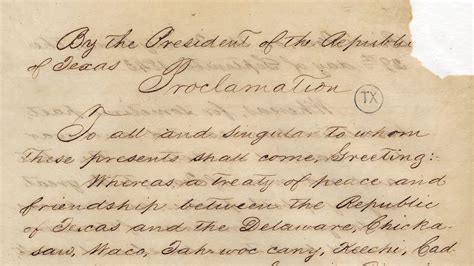 By the President of the Republic
of Texas
Proclamation
TX
To all and singular to whom
these presents shall come, Greeting:
Whereas a treaty of peace and
friendship between the Republic
of Texas and the Delaware, Chicka-
saw, Waco, Tah-woc-cany, Keechi, Cad